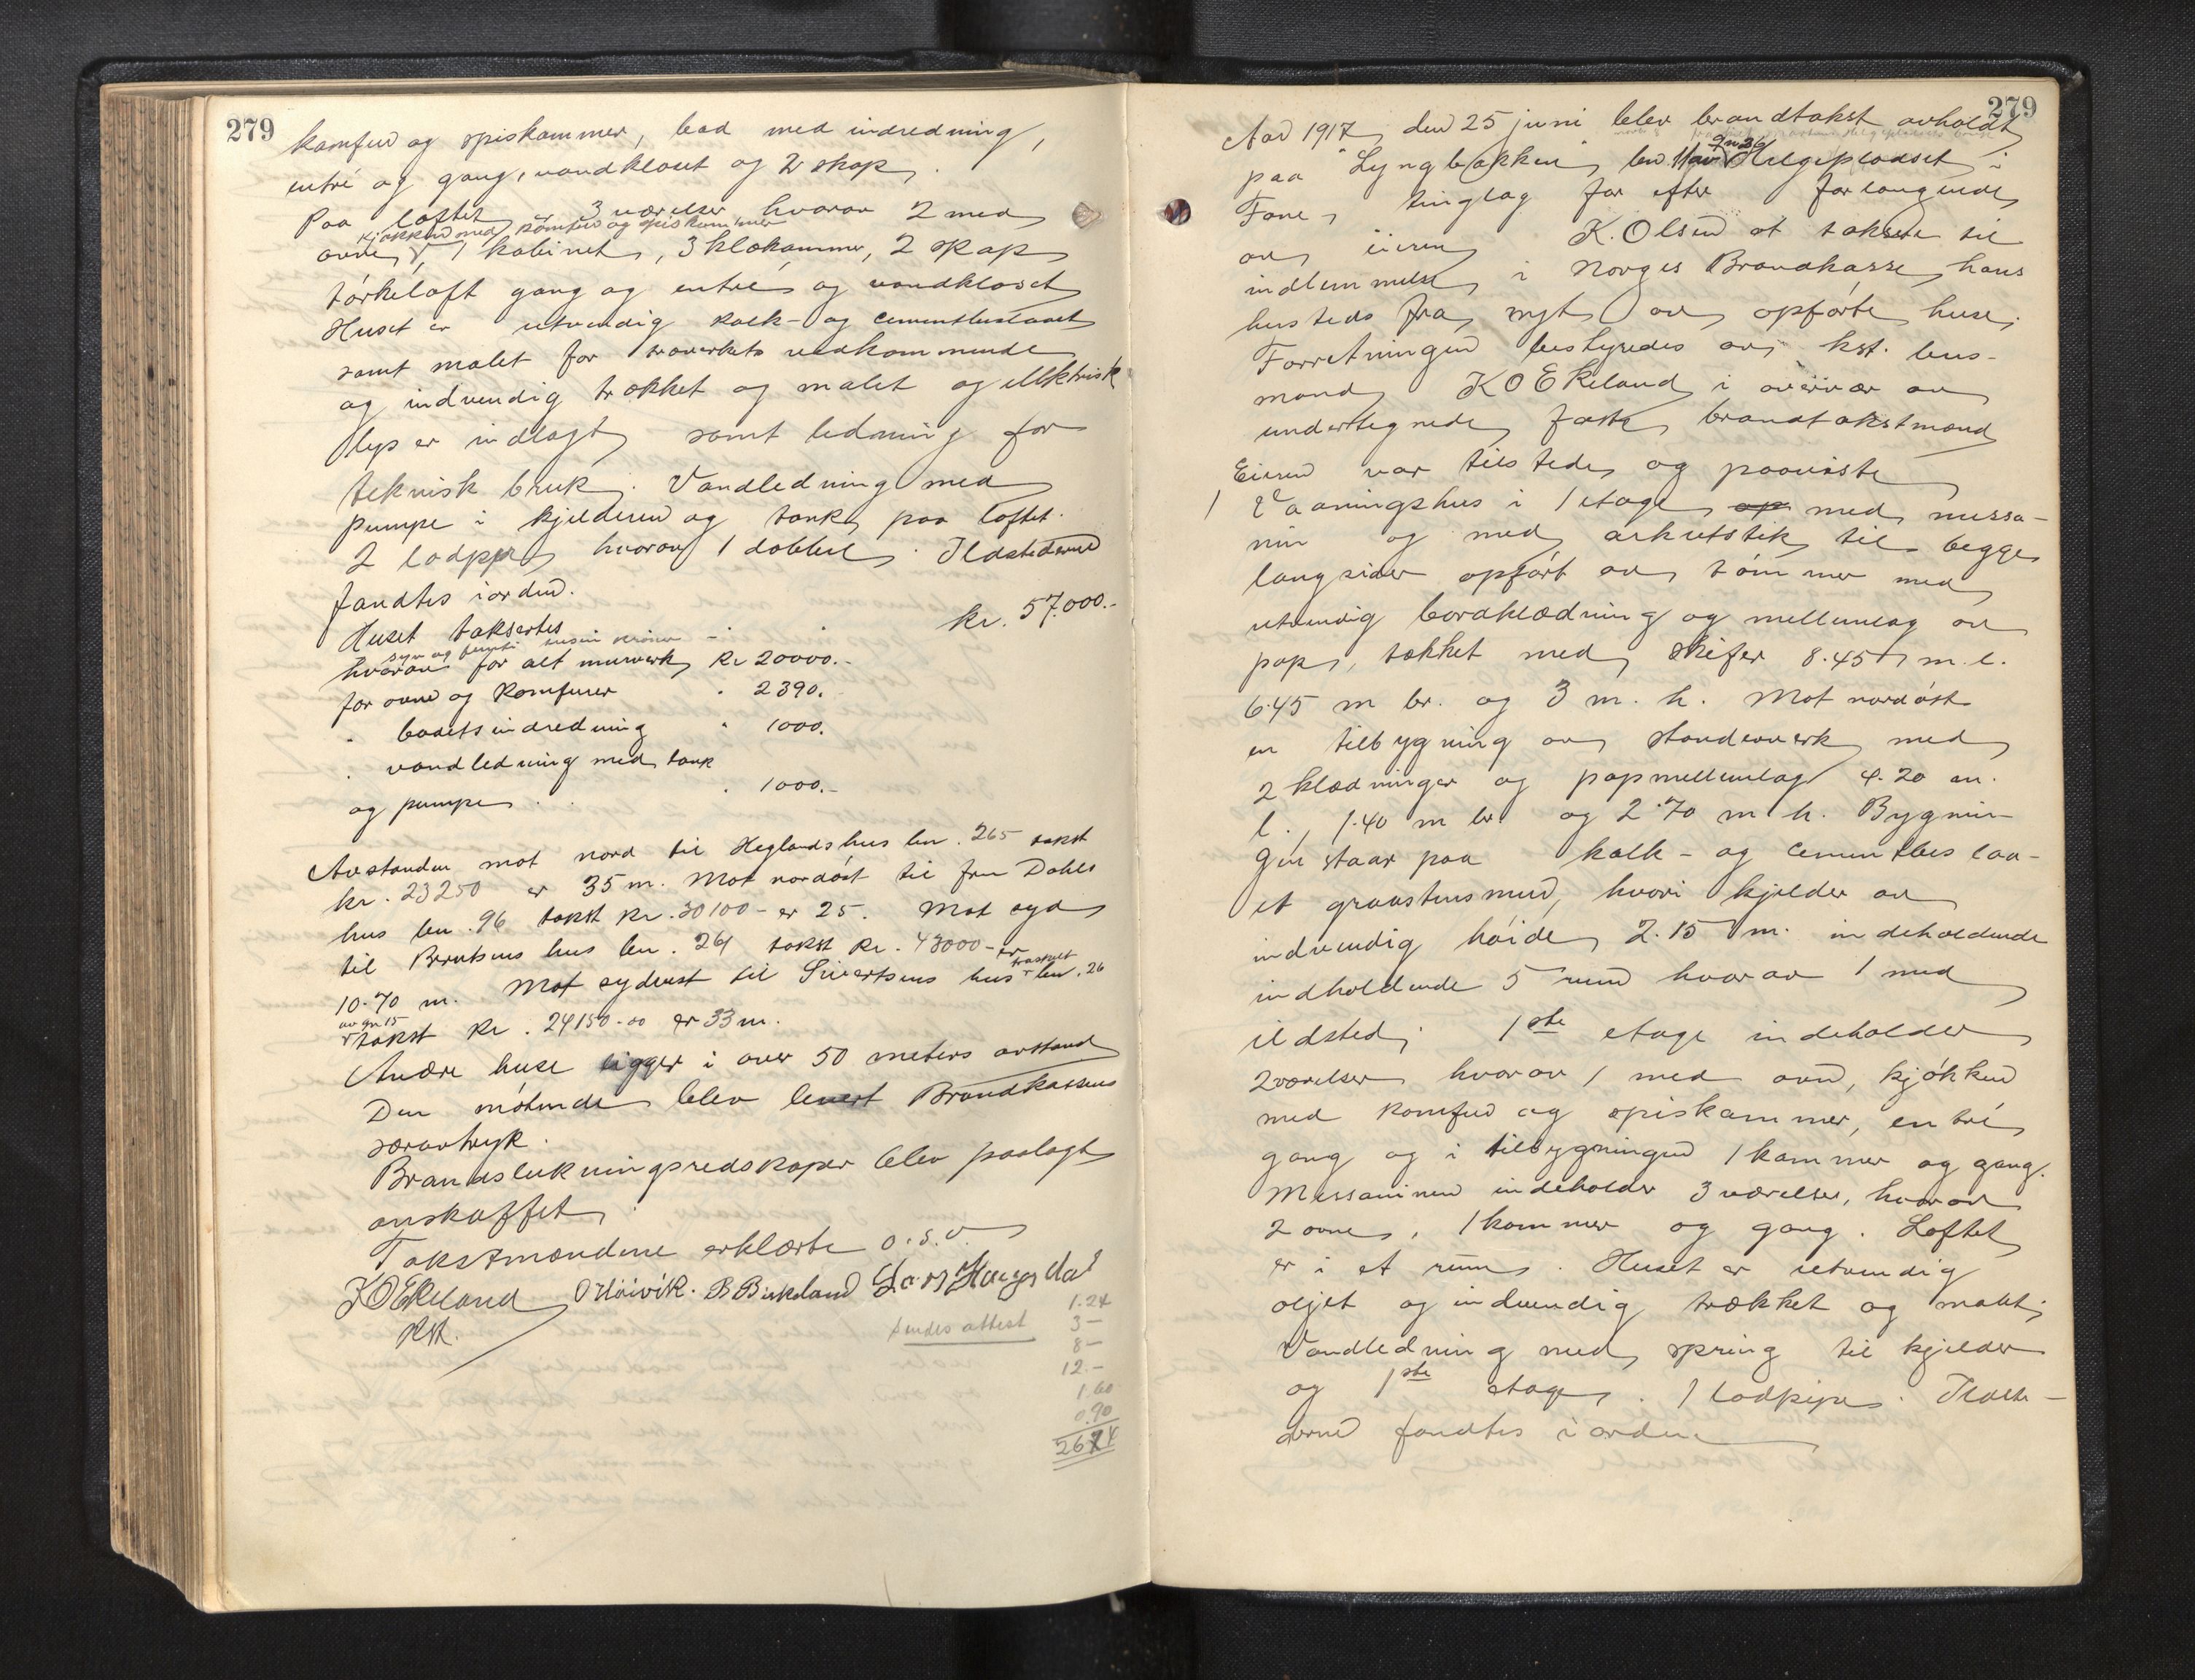 279
komfur og spiskammer, bad med indredning,
entré og gang, vandkloset og 2 skap.
Paa loftet 3 værelser hvorav 2 med
kjøkken med komfur og spiskammer
ovne, 1 kabinet, 3 klækammer, 2 skap
tørkeloft gang og entré og vandkloset
Huset er utvendig kalk- og cementbeslaaet
samt malet for træverkets vedkommende
og indvendig trækket og malet og elektrisk
lys er indlagt samt ledning for
teknisk bruk. Vandledning med
pumpe i kjelderen og tank paa loftet.
2 lodpiper hvorav 1 dobbel. Ildstederne
fandtes iorden.
Huset takseres kr. 57.000.-
syv og femti tusin kroner
hvorav for alt murverk kr 20000.-
for ovne og komfurer " 2390.
" badets indredning " 1000.
" vandledning med tank
og pumpe " 1000.-
Avstanden mot nord til Heglands hus bn. 265 takst
kr. 23250 er 35 m. Mot nordøst til fru Dahls
hus bn. 96 takst kr. 30100- er 25. Mot syd
til Berntsens hus bn. 261 takst kr. 43000- er
10.70 m. Mot sydvest til Sivertsens hus bn. 26
av gn 15
takst kr. 24150.00 er 33 m.
Andre huse ligger i over 50 meters avstand
Den møtende blev levert Brandkassens
særavtryk.
Brandslukningsredskaper blev paalagt
anskaffet.
Takstmændene erklærte o.s.v.
K O Ekeland O Høivik. B Birkeland Lars Haugsdal
kst.
sendes attest
1.24
3-
8-
12.-
1.60
0.90
279
Aar 1917 den 25 juni blev brandtakst avholdt
paa "Lyngbakken" bn. 11 av Helgepladset i
Fane tinglag for efter forlangende
av eieren K. Olsen at taksere til
indlemmelse i Norges Brandkasse hans
husteds fra nyt av opførte huse.
Forretningen bestyredes av kst. lens-
mand K O Ekeland i overvær av
undertegnede faste brandtakstmænd
Eieren var tilstede og paaviste
1 Vaaningshus i 1 etage op med messa-
nin og med arkutstik til begge
langsider opført av tømmer med
utvendig bordklædning og mellemlag av
pap, tækket med skifer 8.45 m. l.
6.45 m br. og 3 m. h. Mot nordøst
en tilbygning av stenderverk med
2 klædninger og papmellemlag 4.20 m.
l., 1.40 m br. og 2.70 m h. Bygnin-
gen staar paa kalk- og cementbeslaa-
et graastensmur, hvori kjelder av
indvendig høide 2.15 m. indeholdende
indholdende 5 rum hvorav 1 med
ildsted. 1ste etage indeholder
2 værelser hvorav 1 med ovn, kjøkken
med komfur og spiskammer, entré
gang og i tilbygningen 1 kammer og gang.
Messaninen indeholder 3 værelser, hvorav
2 ovne, 1 kammer og gang. Loftet
er i et rum. Huset er utvendig
oljet og indvendig trækket og malt.
Vandledning med spring til kjelder
og 1ste etage. 1 lodpipe. Ildste-
derne fandtes i orden